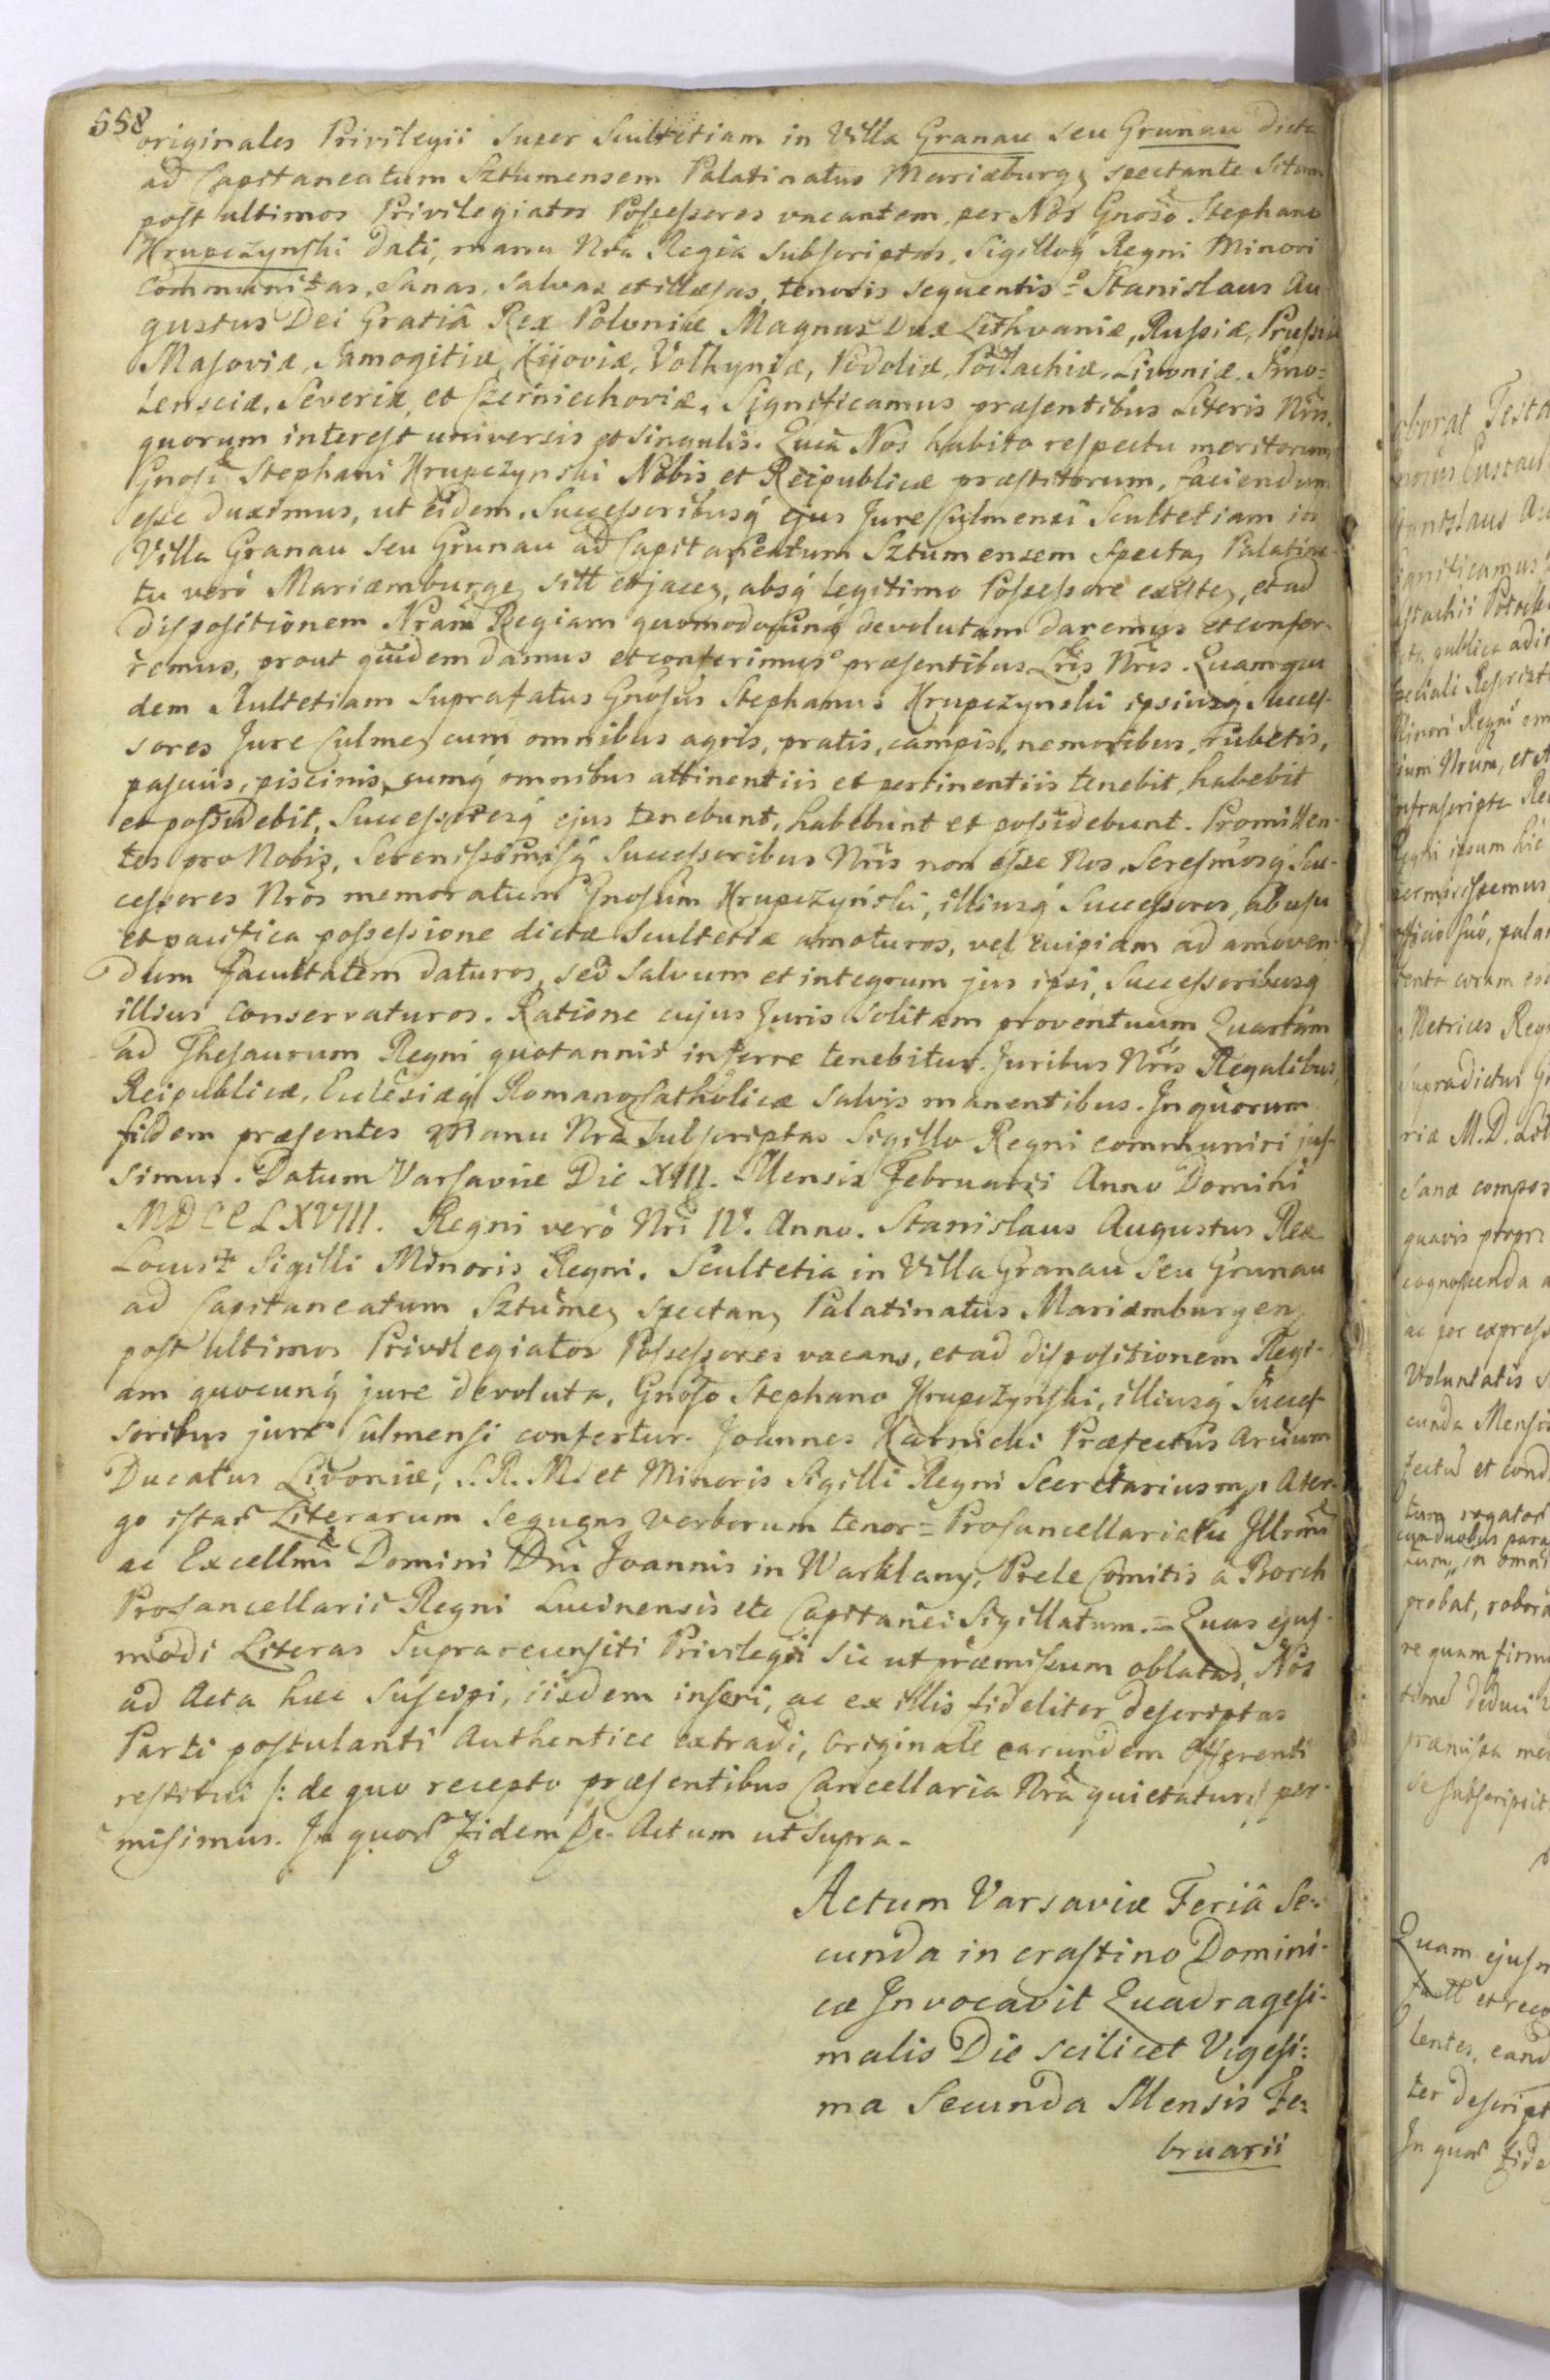 558
originales Privilegii super Scultetiam in Villa Granau seu Grunau dicta
ad Capitaneatum Sztumensem Palatinatus Mariæburg spectante Sitam
post ultimos Privilegiatos Possessores vacantem, per Nos Gnoso Stephano
Hrupczynski dati, manu Nrâ Regia subscriptas, Sigilloq Regni Minori
Communitas, Sanas, Salvas et illæsas, tenoris sequentis = Stanislaus Au
gustus Dei Gratiâ Rex Poloniæ Magnus Dux Lithvaniæ, Russiæ, Prussiæ
Masoviæ, Samogitiæ, Kijoviæ, Volhyniæ, Podoliæ, Podlachiæ, Livoniæ, Smo-
lensciæ, Severiæ, et Czerniechoviæ. Significamus præsentibus Literis Nris,
quorum interest universis et singulis. Quia Nos habito respectu meritorum
Gnosi Stephani Hrupczynski Nobis et Reipublicæ præstitorum, faciendum
esse duximus, ut eidem, Successoribusq ejus Jure Culmensi Scultetiam in
Villa Granau seu Grunau ad Capitaneatum Sztumensem spectan Palatina-
tu verò Mariæmburgen sitt et jacen, absq legitimo Possessore existen, et ad
dispositionem Nram Regiam quomodocunq devolutam daremus et confer-
remus, prout quidem damus et conferimus præsentibus Lris Nris. Quamqui
dem Scultetiam Suprafatus Gnosus Stephanus Hrupczynski ipsiusq Succes-
sores Jure Culmen cum omnibus agris, pratis, campis, nemoribus, rubetis,
pascuis, piscinis, cumq omnibus attinentiis et pertinentiis tenebit, habebit
et possidebit, Successoresq ejus tenebunt, habebunt et possidebunt. Promitten-
tes pro Nobis, Serenissimisq Successoribus Nris non esse Nos, Seresmosq Suc-
cessores Nros memoratum Gnosum Hrupczynski, illiusq Successores, ab usu
et pacifica possessione dictæ Scultetiæ amoturos, vel cuipiam ad amoven-
dum facultatem daturos, sed salvum et integrum jus ipsi, Successoribusq
illius conservaturos. Ratione cujus Juris solitam proventuum Quartam
ad Thesaurum Regni quotannis inferre tenebitur. Juribus Nris Regalibus,
Reipublicæ, Ecclesiæq Romano Catholicæ salvis manentibus. In quorum
fidem præsentes manu Nrâ subscriptas Sigillo Regni communiri jus-
simus. Datum Varsaviæ Die XIII. Mensis Februarii Anno Domini
MDCCLXVIII. Regni verò Nri IV. Anno. Stanislaus Augustus Rex
Locus Sigilli Minoris Regni. Scultetia in Villa Granau seu Grunau
ad Capitaneatum Sztumen spectan Palatinatus Mariæmburgen
post ultimos Privilegiatos Possessores vacans, et ad dispositionem Regi-
am quocunq jure devoluta, Gnoso Stephano Hrupczynski, illiusq Succes-
soribus jure Culmensi confertur. Joannes Karnicki Præfectus Arcium
Ducatus Livoniæ, S. R. M. et Minoris Sigilli Regni Secretarius mp. Ater-
go istar Literarum sequens verborum tenor = ProCancellariatu Illrmi
ac Excellmi Domini Dni Joannis in Warklany, Prele Comitis a Borch
ProCancellarii Regni Lucinensis etc Capitanei Sigillatum. = Quas ejus-
modi Literas Suprarecensiti Privilegii sic ut præmissum oblatas, Nos
ad Acta hæc suscipi, iisdem inseri, ac ex illis fideliter descriptas
Parti postulanti Authentice extradi, Originale earundem Offerenti
restitui /: de quo recepto præsentibus Cancellaria Nra quietatur :/ per-
misimus. In quor Fidem &c. Actum ut supra.
Actum Varsaviæ Feriâ Se-
cunda in crastino Domini-
cæ Invocavit Quadragesi-
malis Die scilicet Vigesi-
ma Secunda Mensis Fe-
bruarii